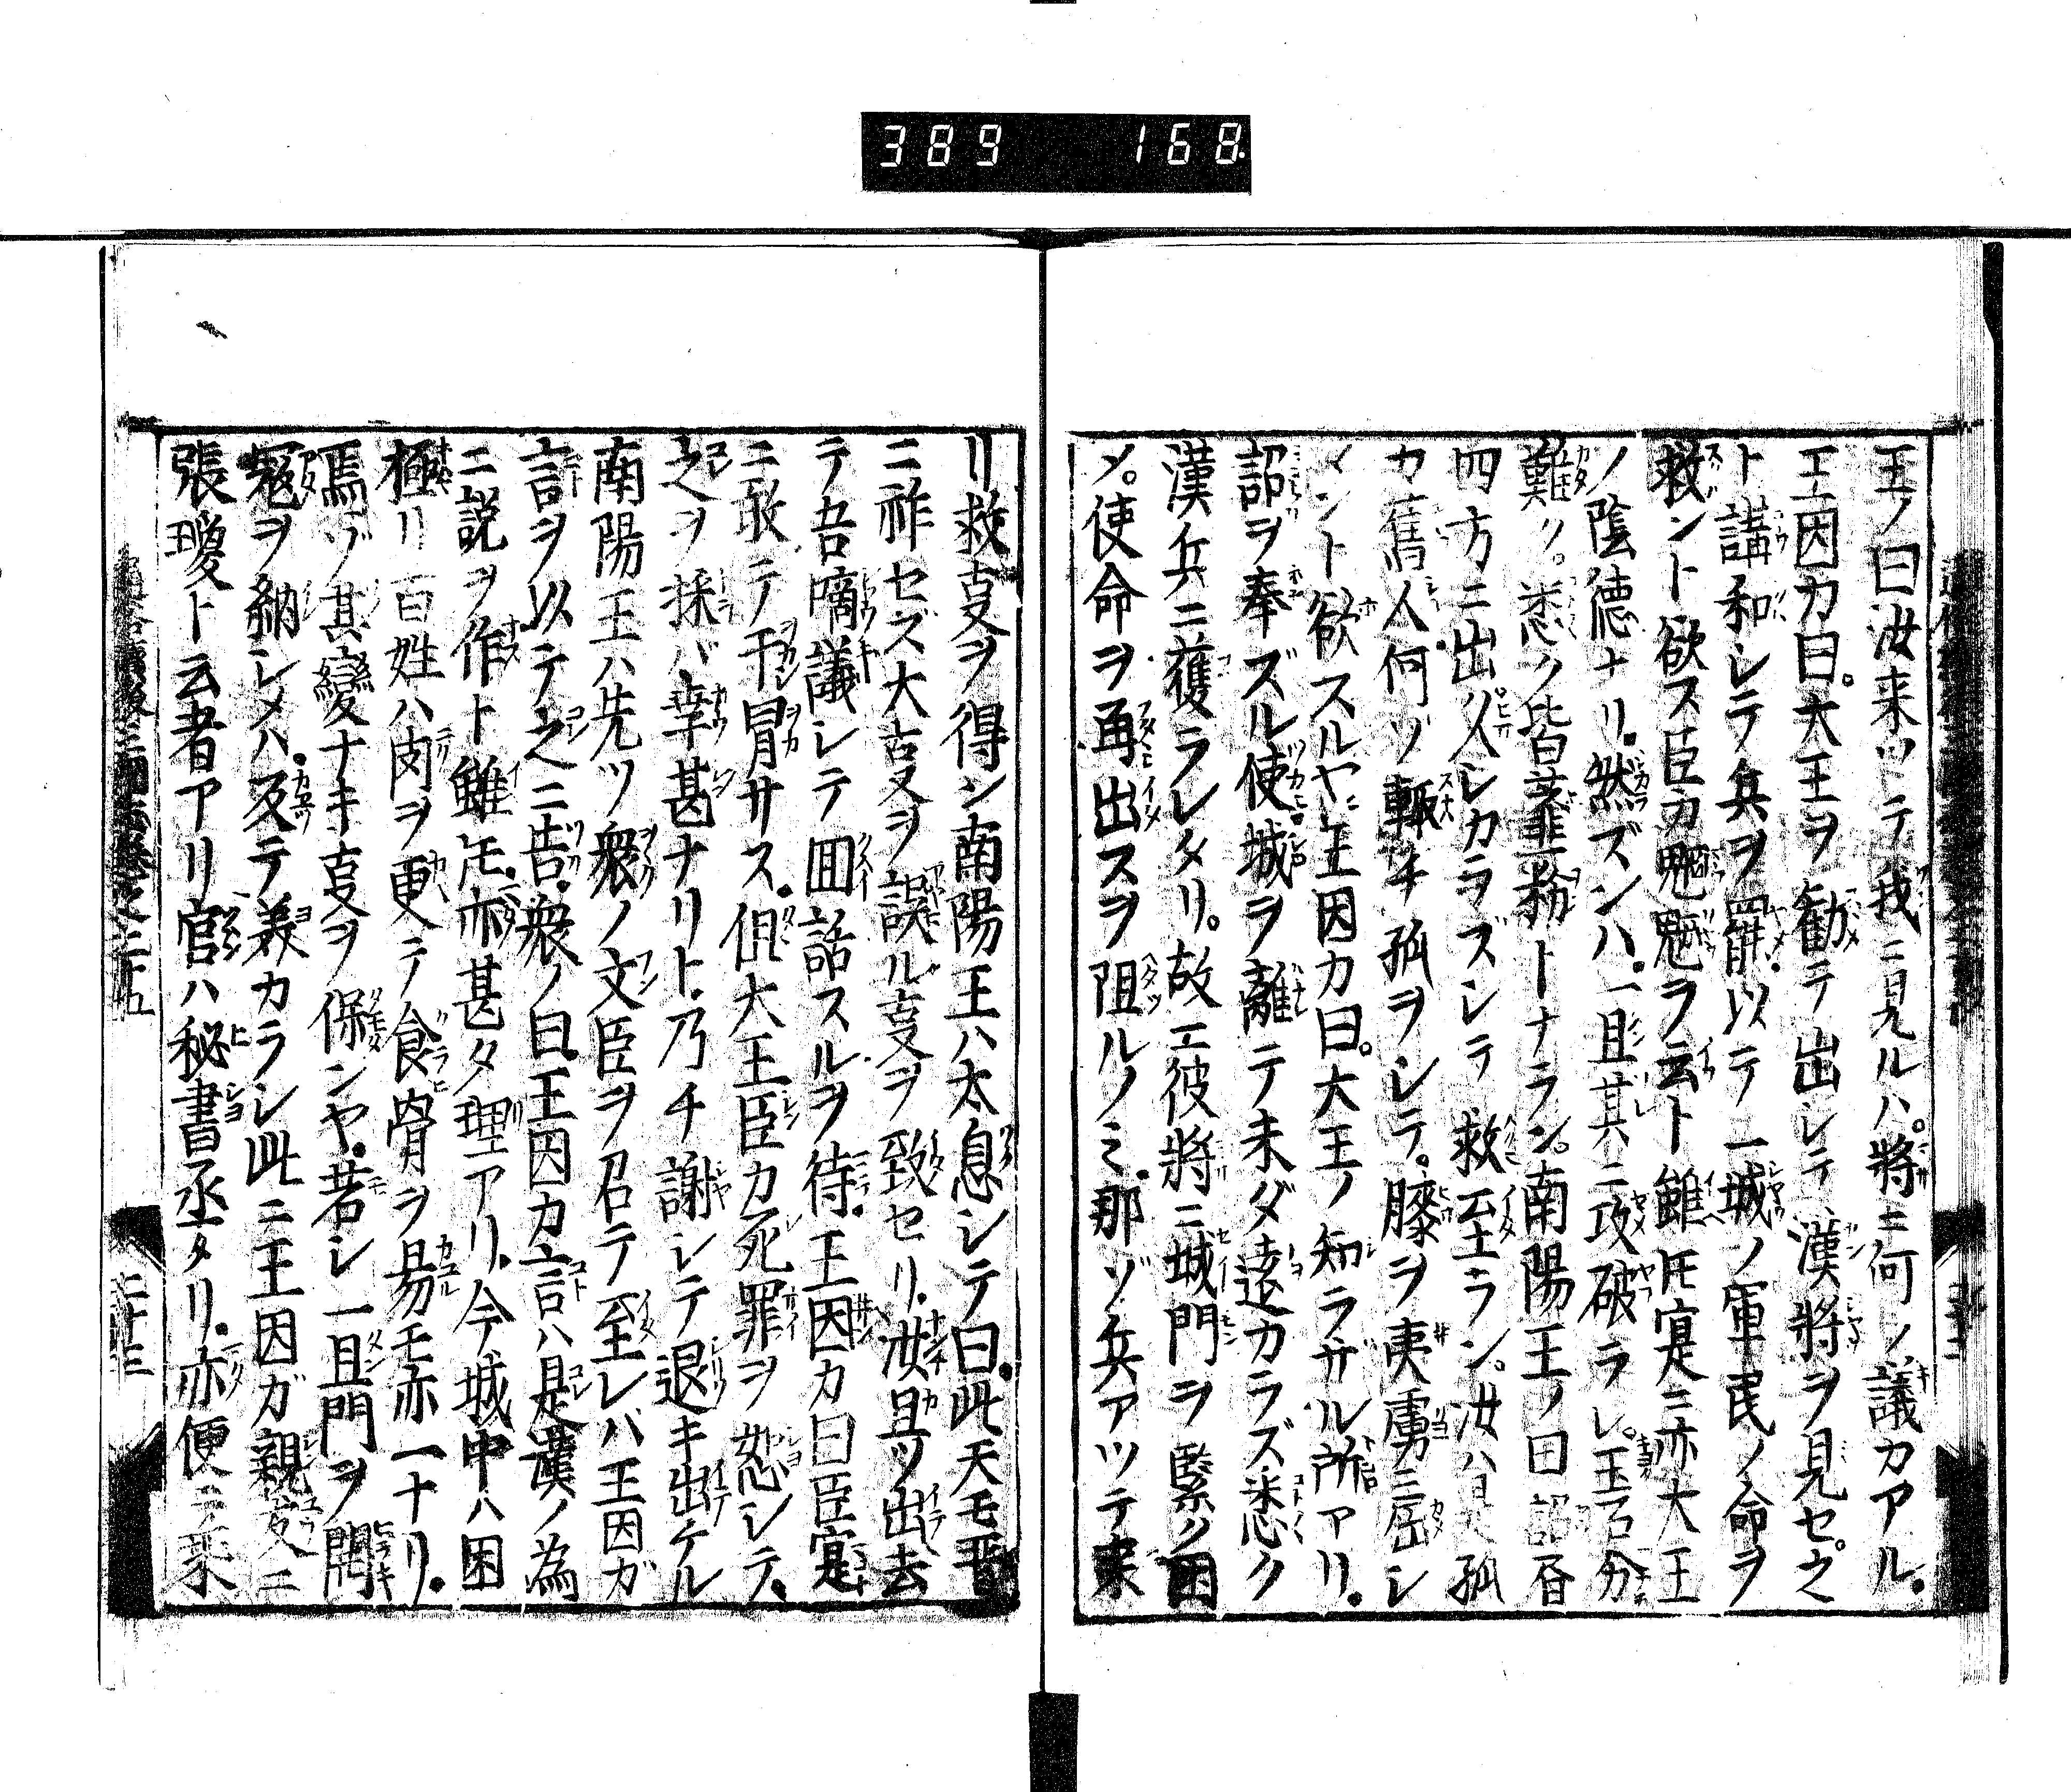 389 168
王ノ曰汝来ツテ我ニ見ルハ。將ニ何ンノ議カアル。
王因カ曰。大王ヲ勧テ出シテ漢將ヲ見セ。之
ト講和シテ兵ヲ罷。以テ一城ノ軍民ノ命ヲ
救ント欲ス臣カ魍魎ヲ云ト雖𪜈寔ニ亦大王
ノ陰德ナリ。然ズンハ。一旦其ニ攻破ラレ。玉石分
難ク。悉ク皆虀粉トナラン。南陽王ノ曰詔
四方ニ出。人シカラズシテ救至ラン。汝ハ是孤
カ舊人何ゾ輙チ孤ヲシテ。膝ヲ夷虜ニ屈シ
メント欲スルヤ王因カ曰。大王ノ知ラザル所アリ。
詔ヲ奉ズル使。城ヲ離テ未ダ遠カラズ悉ク
漢兵ニ獲ラレタリ。故エ彼將ニ城門ヲ緊ク困
メ。使命ヲ再出スヲ阻ルノミ。那ゾ兵アツテ来
リ救叓ヲ得ン南陽王ハ太息シテ曰。此天モ晋
ニ祚セズ大叓ヲ誤ル叓ヲ致セリ。汝且ツ出去
テ吾嘀議シテ囬話スルヲ待。王因カ曰臣寔
ニ敢テ干冒サス。但大王臣カ死罪ヲ恕シテ。
之ヲ採バ幸甚ナリト。乃チ謝シテ退キ出ケル
南陽王ハ先ツ衆ノ文臣ヲ召テ至レバ王因ガ
言ヲ以テ之ニ告。衆ノ曰。王因カ言ハ是漢ノ為
ニ説ヲ作ト雖𪜈。亦甚タ理アリ。今城中ハ困
極リ百姓ハ肉ヲ更テ食骨ヲ易モ亦一ナリ。
焉ゾ其變ナキ叓ヲ保ンヤ。若シ一旦門ヲ開
冦ヲ納シメハ。反テ義カラシ此ニ王因ガ親友ニ
張瓊ト云者アリ官ハ秘書丞タリ。亦便テ来
二十三